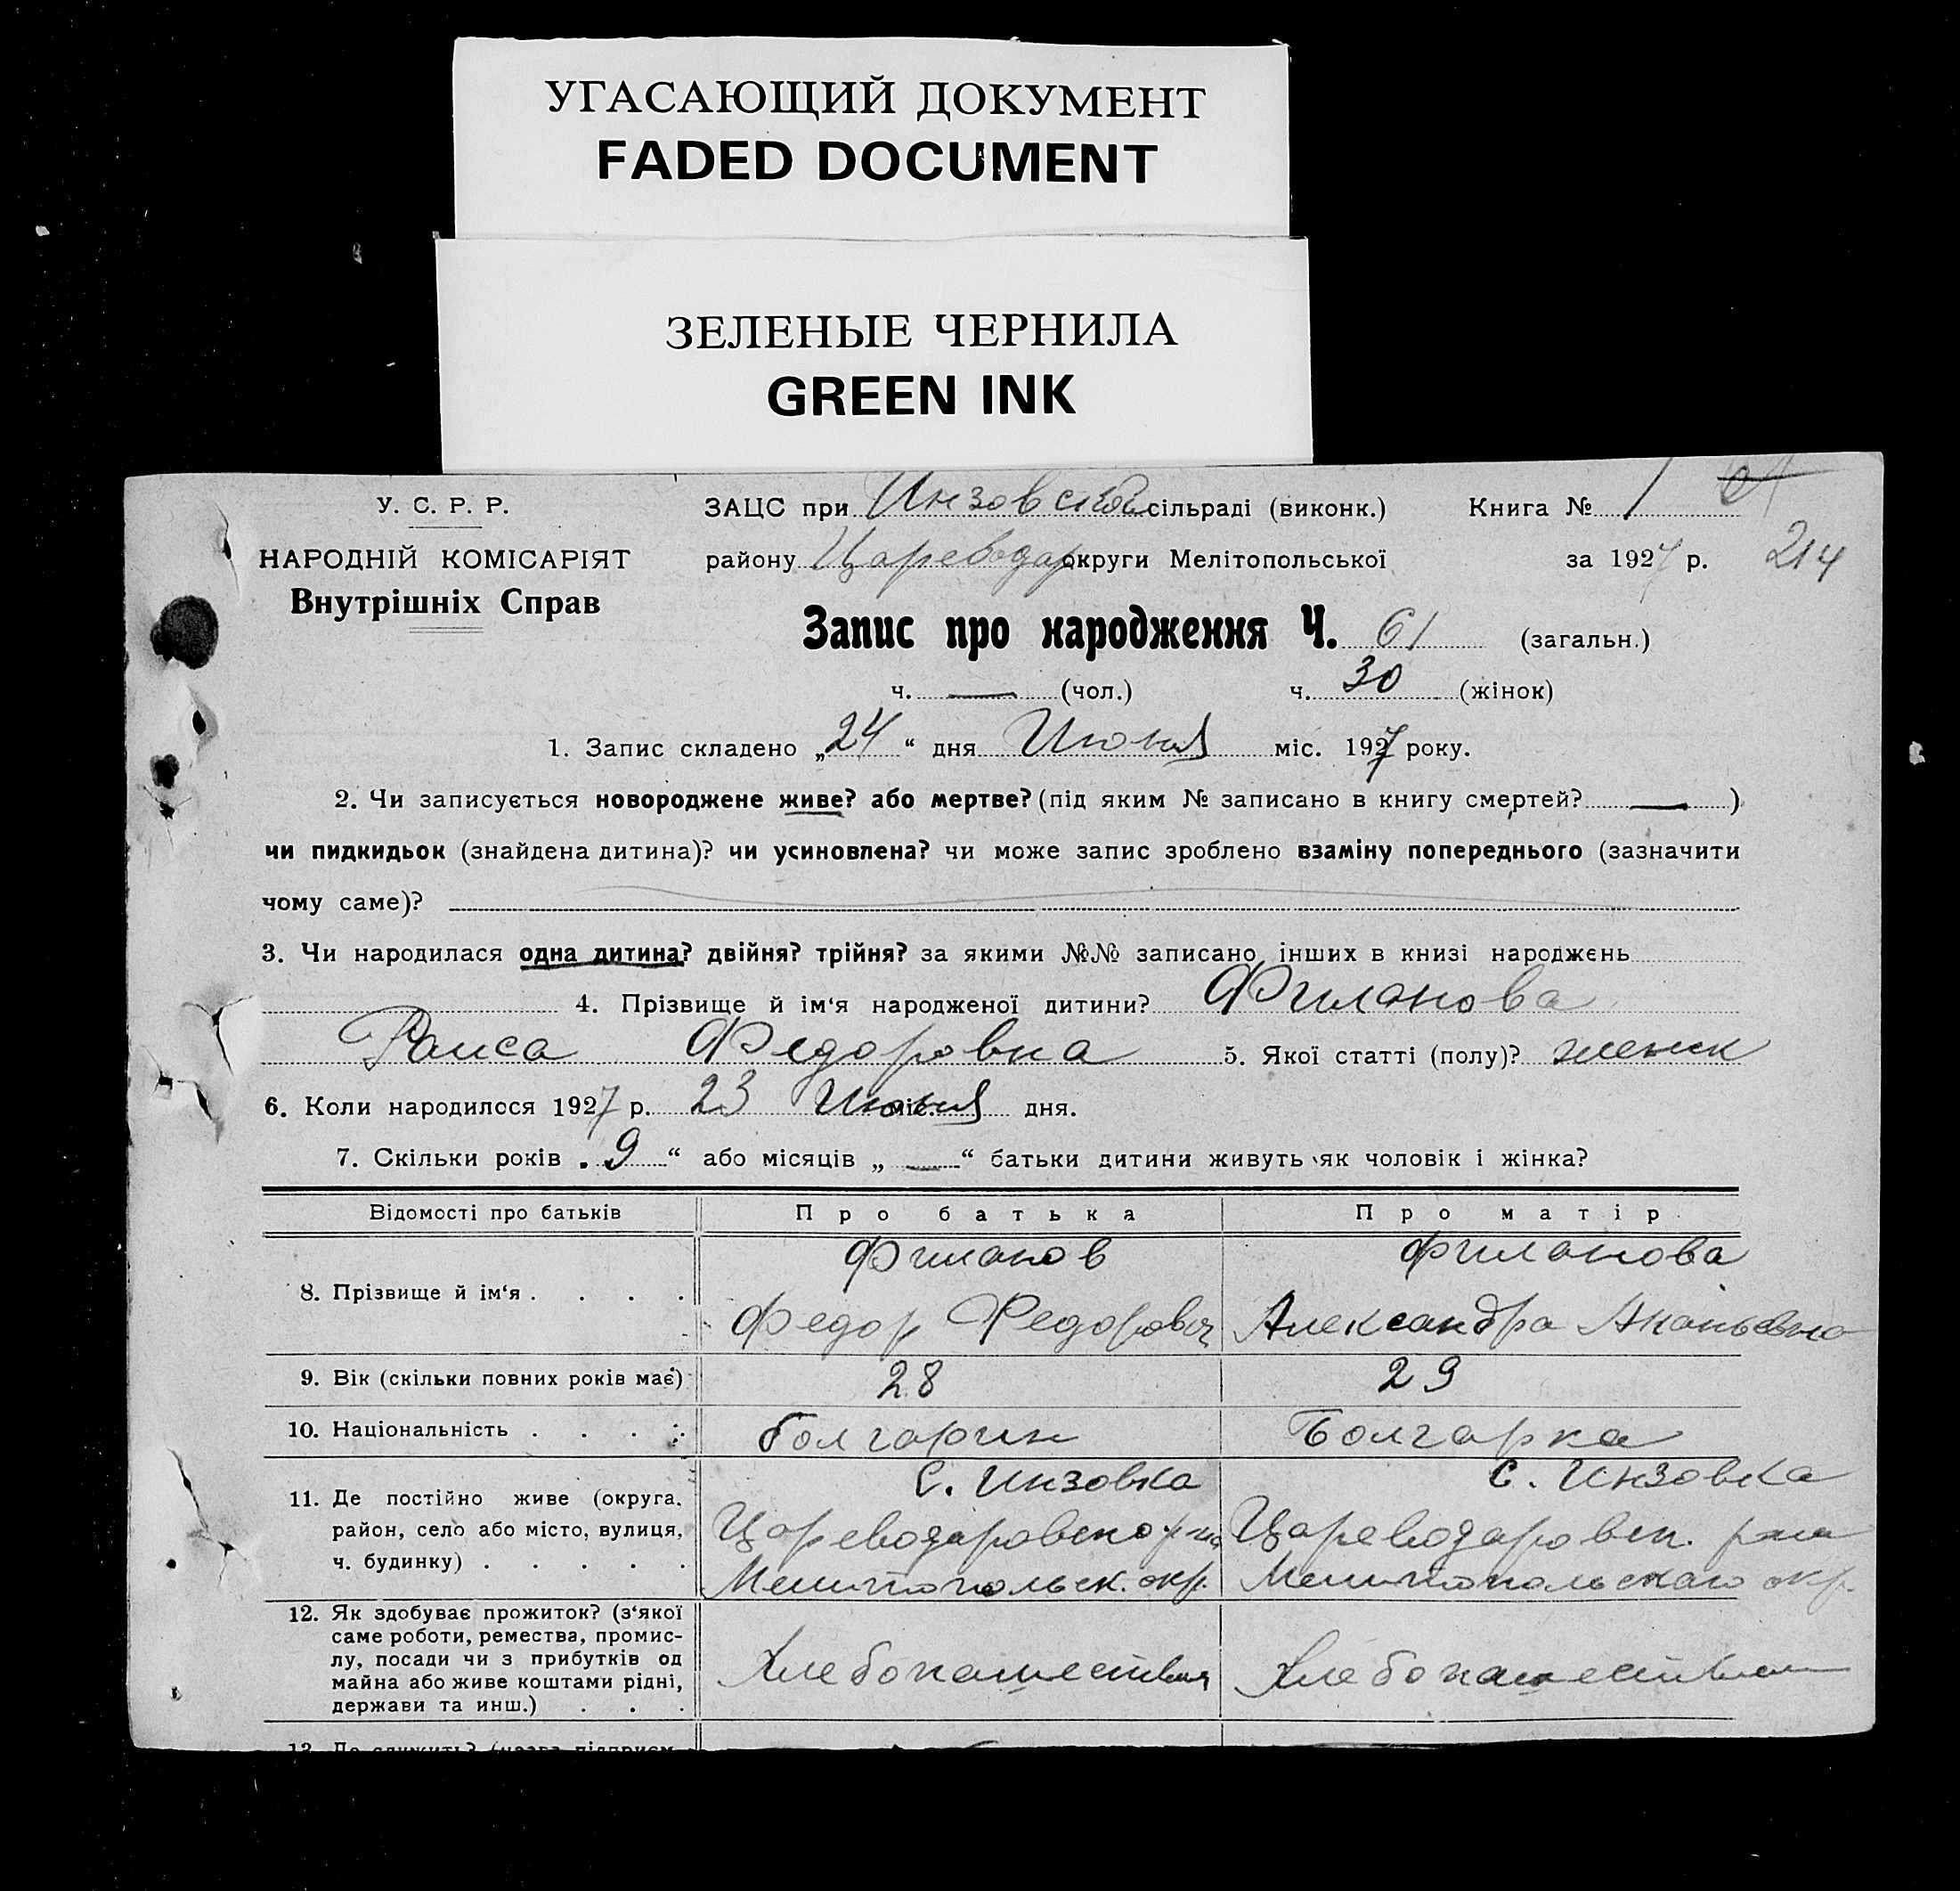 УГАСАЮЩИЙ ДОКУМЕНТ
FADED DOCUMENT
ЗЕЛЕНЫЕ ЧЕРНИЛА
GREEN INK
У. С. Р. Р.
НАРОДНІЙ КОМІСАРІЯТ
Внутрішніх Справ
ЗАЦС при Инзовской сільраді (виконк.) Книга № 1
району Цареводар округи Мелітопольської за 1927 р. 214
Запис про народження Ч. 61 (загальн.)
ч. — (чол.) ч. 30 (жінок)
1. Запис складено „24“ дня Июня міс. 1927 року.
2. Чи записується новороджене живе? або мертве? (під яким № записано в книгу смертей? — )
чи пидкидьок (знайдена дитина)? чи усиновлена? чи може запис зроблено взаміну попереднього (зазначити
чому саме)?
3. Чи народилася одна дитина? двійня? трійня? за якими №№ записано інших в книзі народжень
4. Прізвище й ім‘я народженої дитини? Филанова
Раиса Федоровна 5. Якої статті (полу)? женск
6. Коли народилося 1927 р. 23 Июня міс. дня.
7. Скільки років „9“ або місяців „ — “ батьки дитини живуть як чоловік і жінка?
Відомості про батьків Про батька Про матір
8. Прізвище й ім‘я . . . . Филанов Филанова
Федор Федорович Александра Ананьевна
9. Вік (скільки повних років має) 28 29
10. Національність . . . . болгарин Болгарка
11. Де постійно живе (округа, с. Инзовка с. Инзовка
район, село або місто, вулиця, Цареводаровского р-на Цареводаровск. р-на
ч. будинку) . . . . . Мелитопольск. окр. Мелитопольскаго окр.
12. Як здобуває прожиток? (з‘якої
саме роботи, ремества, промис-
лу, посади чи з прибутків од
майна або живе коштами рідні,
держави та инш.) . . . Хлебопашество Хлебопашеством
13. Де служить? (назва підприєм-